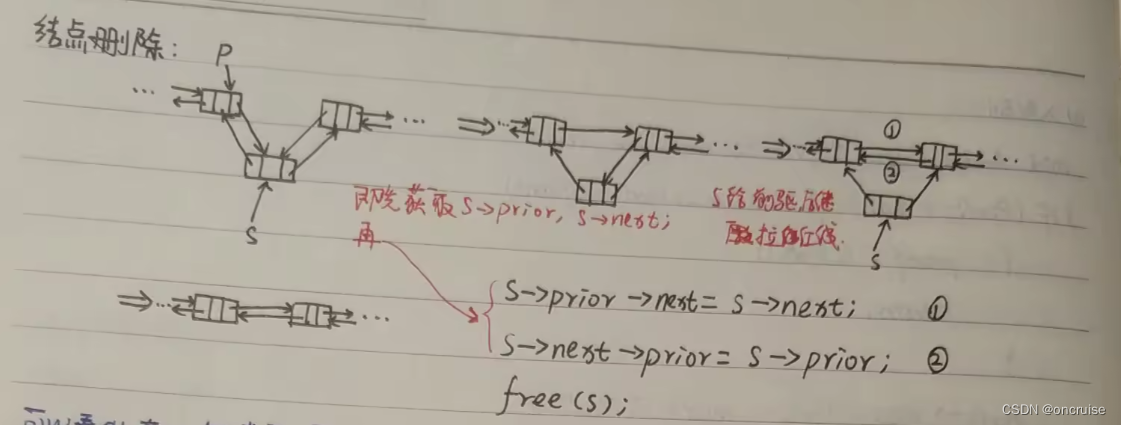 结点删除:
P
...
...
...
...
...
①
...
②
S
S
即先获取S->prior, S->next;
再
S给前驱后继
拉红线.
...
...
S->prior->next = S->next; ①
S->next->prior = S->prior; ②
free(S);
CSDN @oncruise